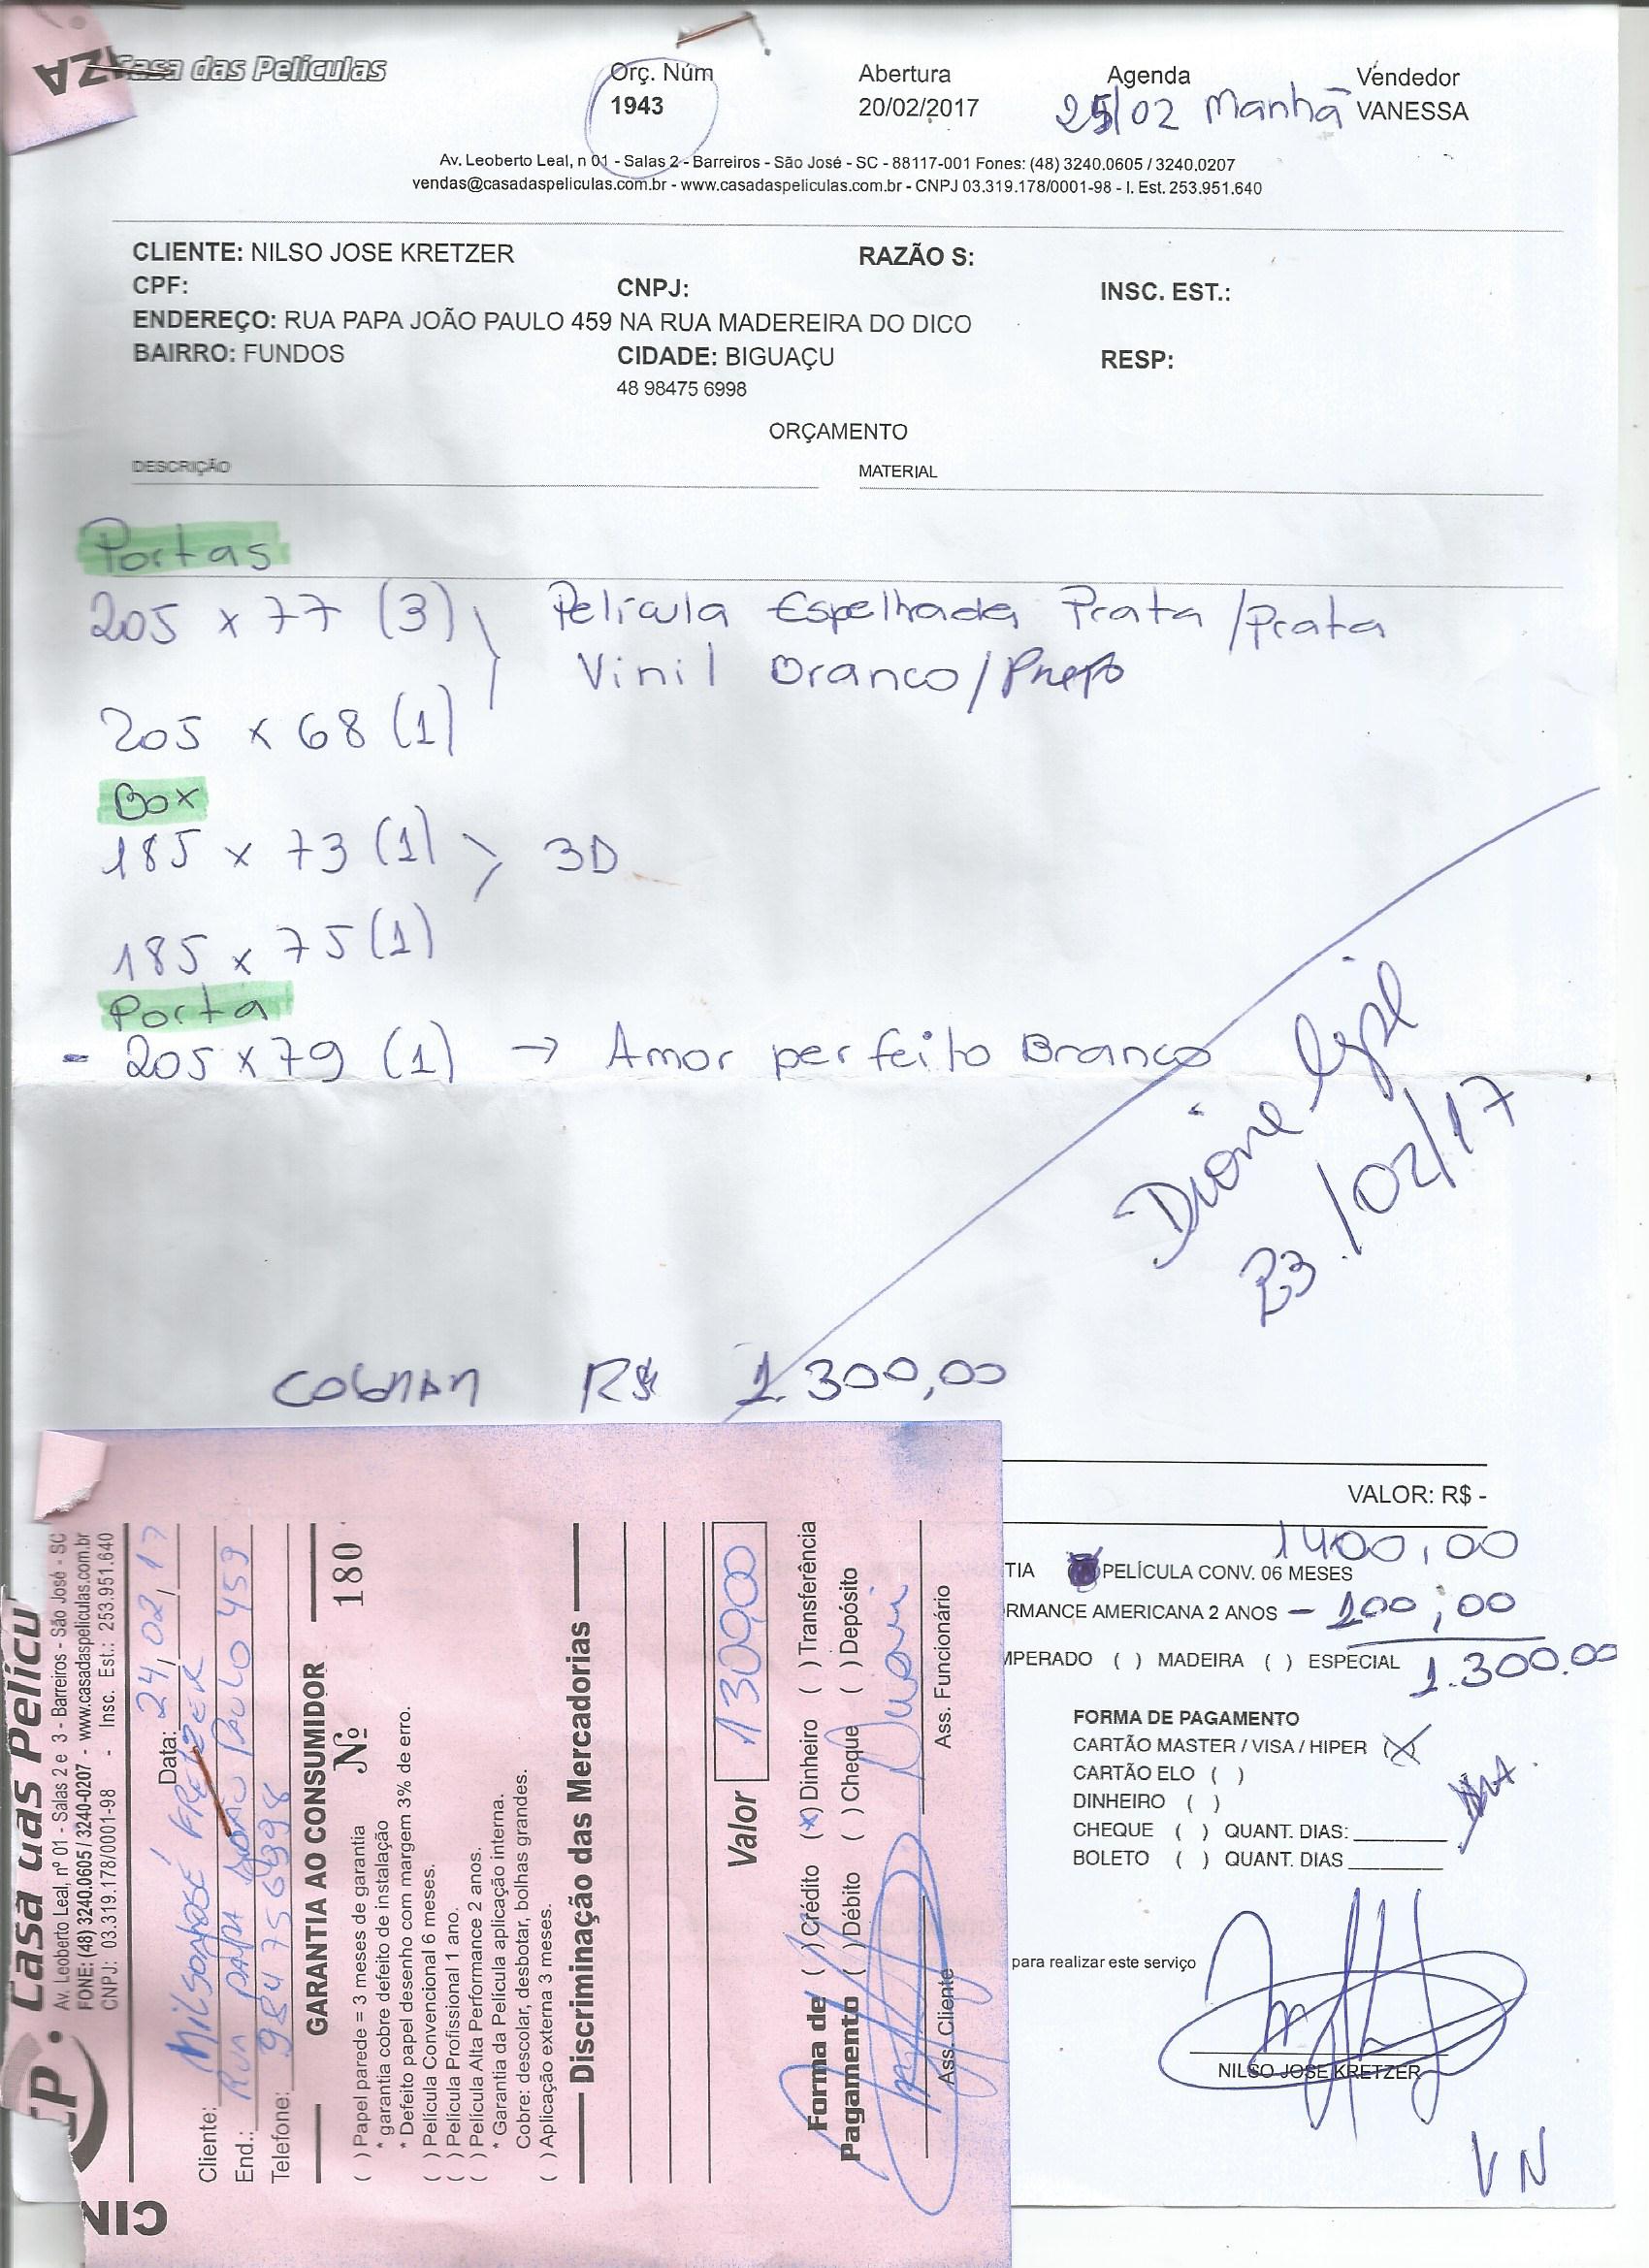 Casa das Películas
Orç. Núm
1943
Abertura
20/02/2017
Agenda
25/02 Manhã
Vendedor
VANESSA
Av. Leoberto Leal, n 01 - Salas 2 - Barreiros - São José - SC - 88117-001 Fones: (48) 3240.0605 / 3240.0207
vendas@casadaspeliculas.com.br - www.casadaspeliculas.com.br - CNPJ 03.319.178/0001-98 - I. Est. 253.951.640
CLIENTE: NILSO JOSE KRETZER RAZÃO S:
CPF: CNPJ: INSC. EST.:
ENDEREÇO: RUA PAPA JOÃO PAULO 459 NA RUA MADEREIRA DO DICO
BAIRRO: FUNDOS CIDADE: BIGUAÇU RESP:
48 98475 6998
ORÇAMENTO
DESCRIÇÃO MATERIAL
Portas
205 x 77 (3) Película Espelhada Prata/Prata
Vinil Branco/Preto
205 x 68 (1)
Box
185 x 73 (1) 3D
185 x 75 (1)
Porta
- 205 x 79 (1) → Amor perfeito Branco
Dione
23/02/17
R$ 1.300,00
VALOR: R$ -
1400,00
TIA PELÍCULA CONV. 06 MESES
RMANCE AMERICANA 2 ANOS - 100,00
MPERADO ( ) MADEIRA ( ) ESPECIAL 1.300.00
FORMA DE PAGAMENTO
CARTÃO MASTER / VISA / HIPER (X)
CARTÃO ELO ( )
DINHEIRO ( )
CHEQUE ( ) QUANT. DIAS:
BOLETO ( ) QUANT. DIAS
para realizar este serviço
NILSO JOSE KRETZER
VN
Casa das Pelícu
Av. Leoberto Leal, nº 01 - Salas 2 e 3 - Barreiros - São José - SC
FONE: (48) 3240.0605 / 3240-0207 - www.casadaspeliculas.com.br
CNPJ: 03.319.178/0001-98 - Insc. Est.: 253.951.640
Data: 24/02/17
Cliente: NILSON JOSÉ
End.: RUA PAPA JOÃO PAULO 459
Telefone: 98475 6998
GARANTIA AO CONSUMIDOR
Nº 180
( ) Papel parede = 3 meses de garantia
* garantia cobre defeito de instalação
* Defeito papel desenho com margem 3% de erro.
( ) Película Convencional 6 meses.
( ) Película Profissional 1 ano.
( ) Película Alta Performance 2 anos.
* Garantia da Película aplicação interna.
Cobre: descolar, desbotar, bolhas grandes.
( ) Aplicação externa 3 meses.
Discriminação das Mercadorias
Valor 1300,00
Forma de Pagamento
( ) Crédito (x) Dinheiro ( ) Transferência
( ) Débito ( ) Cheque ( ) Depósito
Ass. Cliente
Ass. Funcionário